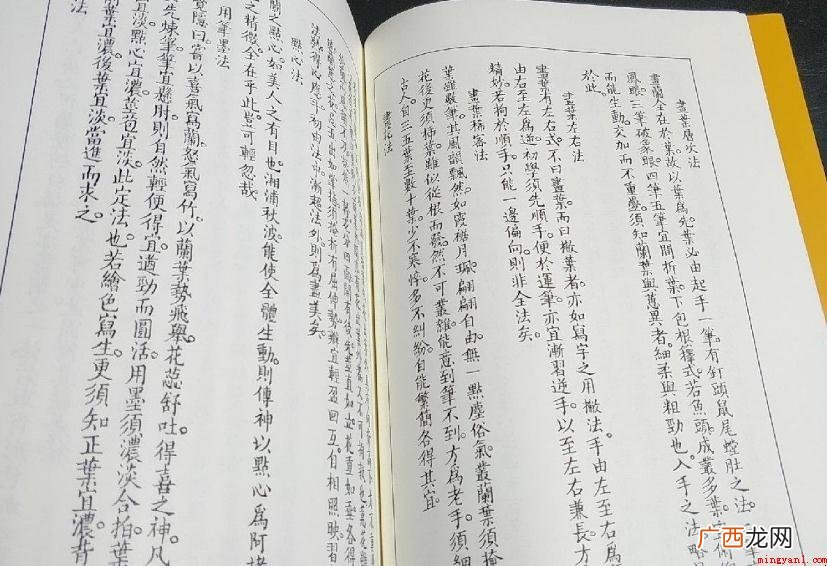 畫葉層次法
畫蘭全在於葉。故以葉為先。葉必由起手一筆。有釘頭鼠尾螳肚之法。
鳳眼。三筆破象眼。四筆五筆宜間折葉。下包根籜式。若魚頭。成叢多葉。
而能生動。交加而不重疊。須知蘭葉與蕙異者。細柔與粗勁也。入手之法。略
於此。
畫葉左右法
畫葉有左右式。不曰畫葉。而曰撇葉者。亦如寫字之用撇法。手由左至右為
由右至左為逆。初學須先順手。便於運筆。亦宜漸習逆手。以至左右兼長。方
精妙。若拘於順手。只能一邊偏向。則非全法矣。
畫葉稀密法
葉雖數筆。其風韻飄然。如霞裾月珮。翩翩自由。無一點塵俗氣。叢蘭葉須掩
花後更須補葉。雖似從根而發。然不可叢雜。能意到筆不到。方為老手。須細
古人。自三五葉至數十葉。少不寒悴。多不糾紛。自能繁簡各得其宜。
畫花法
法熟得心應手。初由法中。漸超法外。則為盡美矣。
點心法
蘭之點心。如美人之有目也。湘浦秋波。能使全體生動。則傳神以點心為阿堵
之精微。全在乎此。豈可輕忽哉。
用筆墨法
覺隱曰。嘗以喜氣寫蘭。怒氣寫竹。以蘭葉勢飛舉。花蕊舒吐。得喜之神。凡
先煉筆。筆宜懸用。則自然輕便得宜。遒勁而圓活。用墨須濃淡合拍。葉
宜淡。點心宜濃。莖苞宜淡。此定法也。若繪色寫生。更須知正葉宜濃。背
葉宜濃。後葉宜淡。當進而求之。
法
广西龙网
mingyan1.com